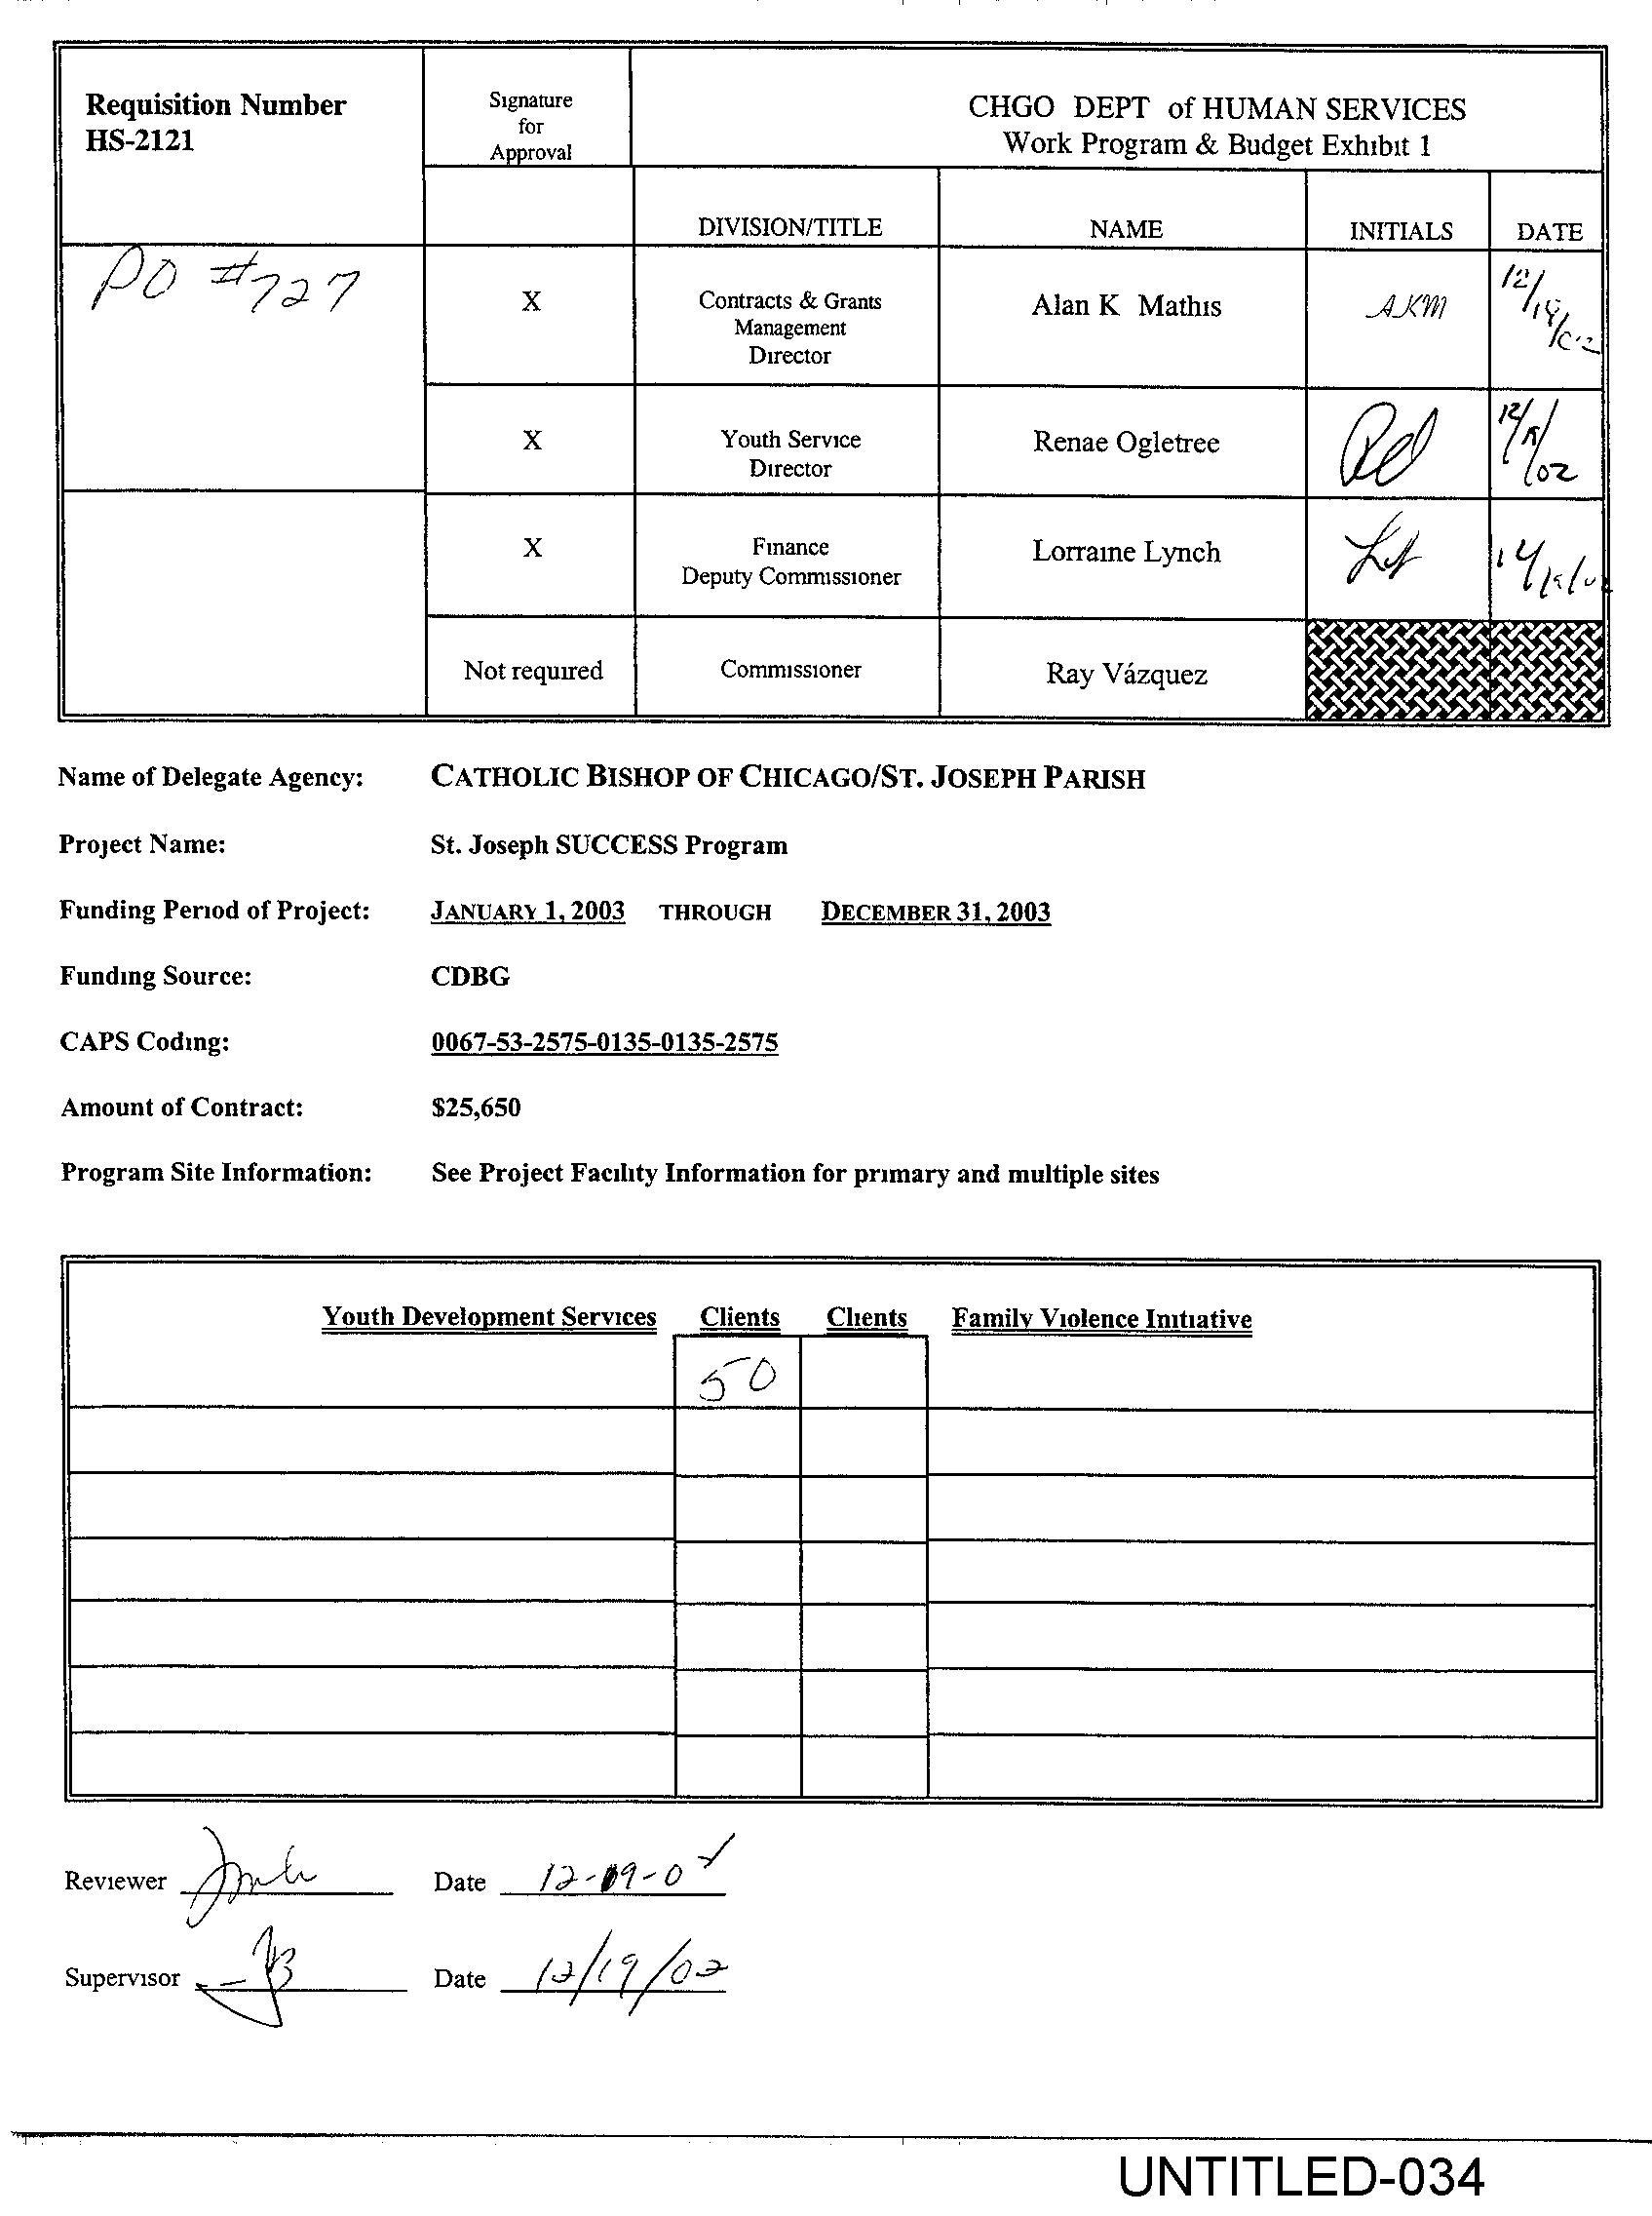 Requisition Number
HS-2121
Signature
for
Approval
CHGO DEPT of HUMAN SERVICES
Work Program & Budget Exhibit 1
DIVISION/TITLE NAME INITIALS DATE
PO #727
X Contracts & Grants
Management
Director
Alan K Mathis AKM
X Youth Service
Director
Renae Ogletree 12/19/02
X Finance
Deputy Commissioner
Lorraine Lynch
Not required Commissioner Ray Vázquez
Name of Delegate Agency: CATHOLIC BISHOP OF CHICAGO/ST. JOSEPH PARISH
Project Name: St. Joseph SUCCESS Program
Funding Period of Project: JANUARY 1, 2003 THROUGH DECEMBER 31, 2003
Funding Source: CDBG
CAPS Coding: 0067-53-2575-0135-0135-2575
Amount of Contract: $25,650
Program Site Information: See Project Facility Information for primary and multiple sites
Youth Development Services Clients Clients Family Violence Initiative
50
Reviewer Date 12-09-02
Supervisor Date 12/19/02
UNTITLED-034